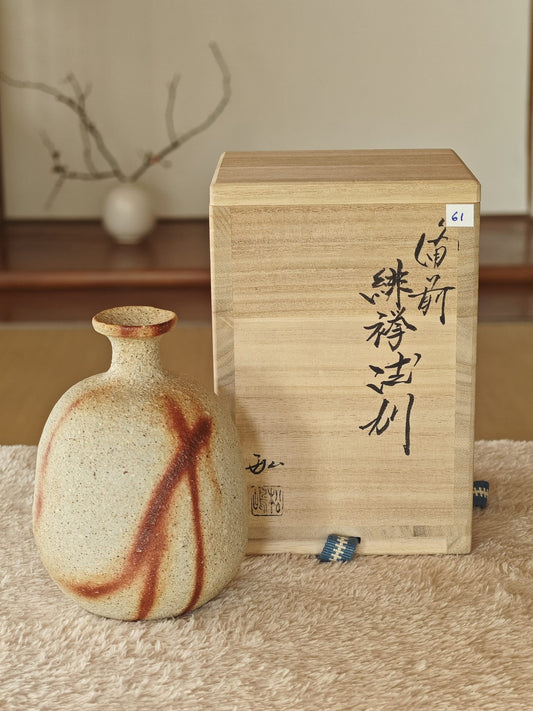 61
備前
緋襷徳利